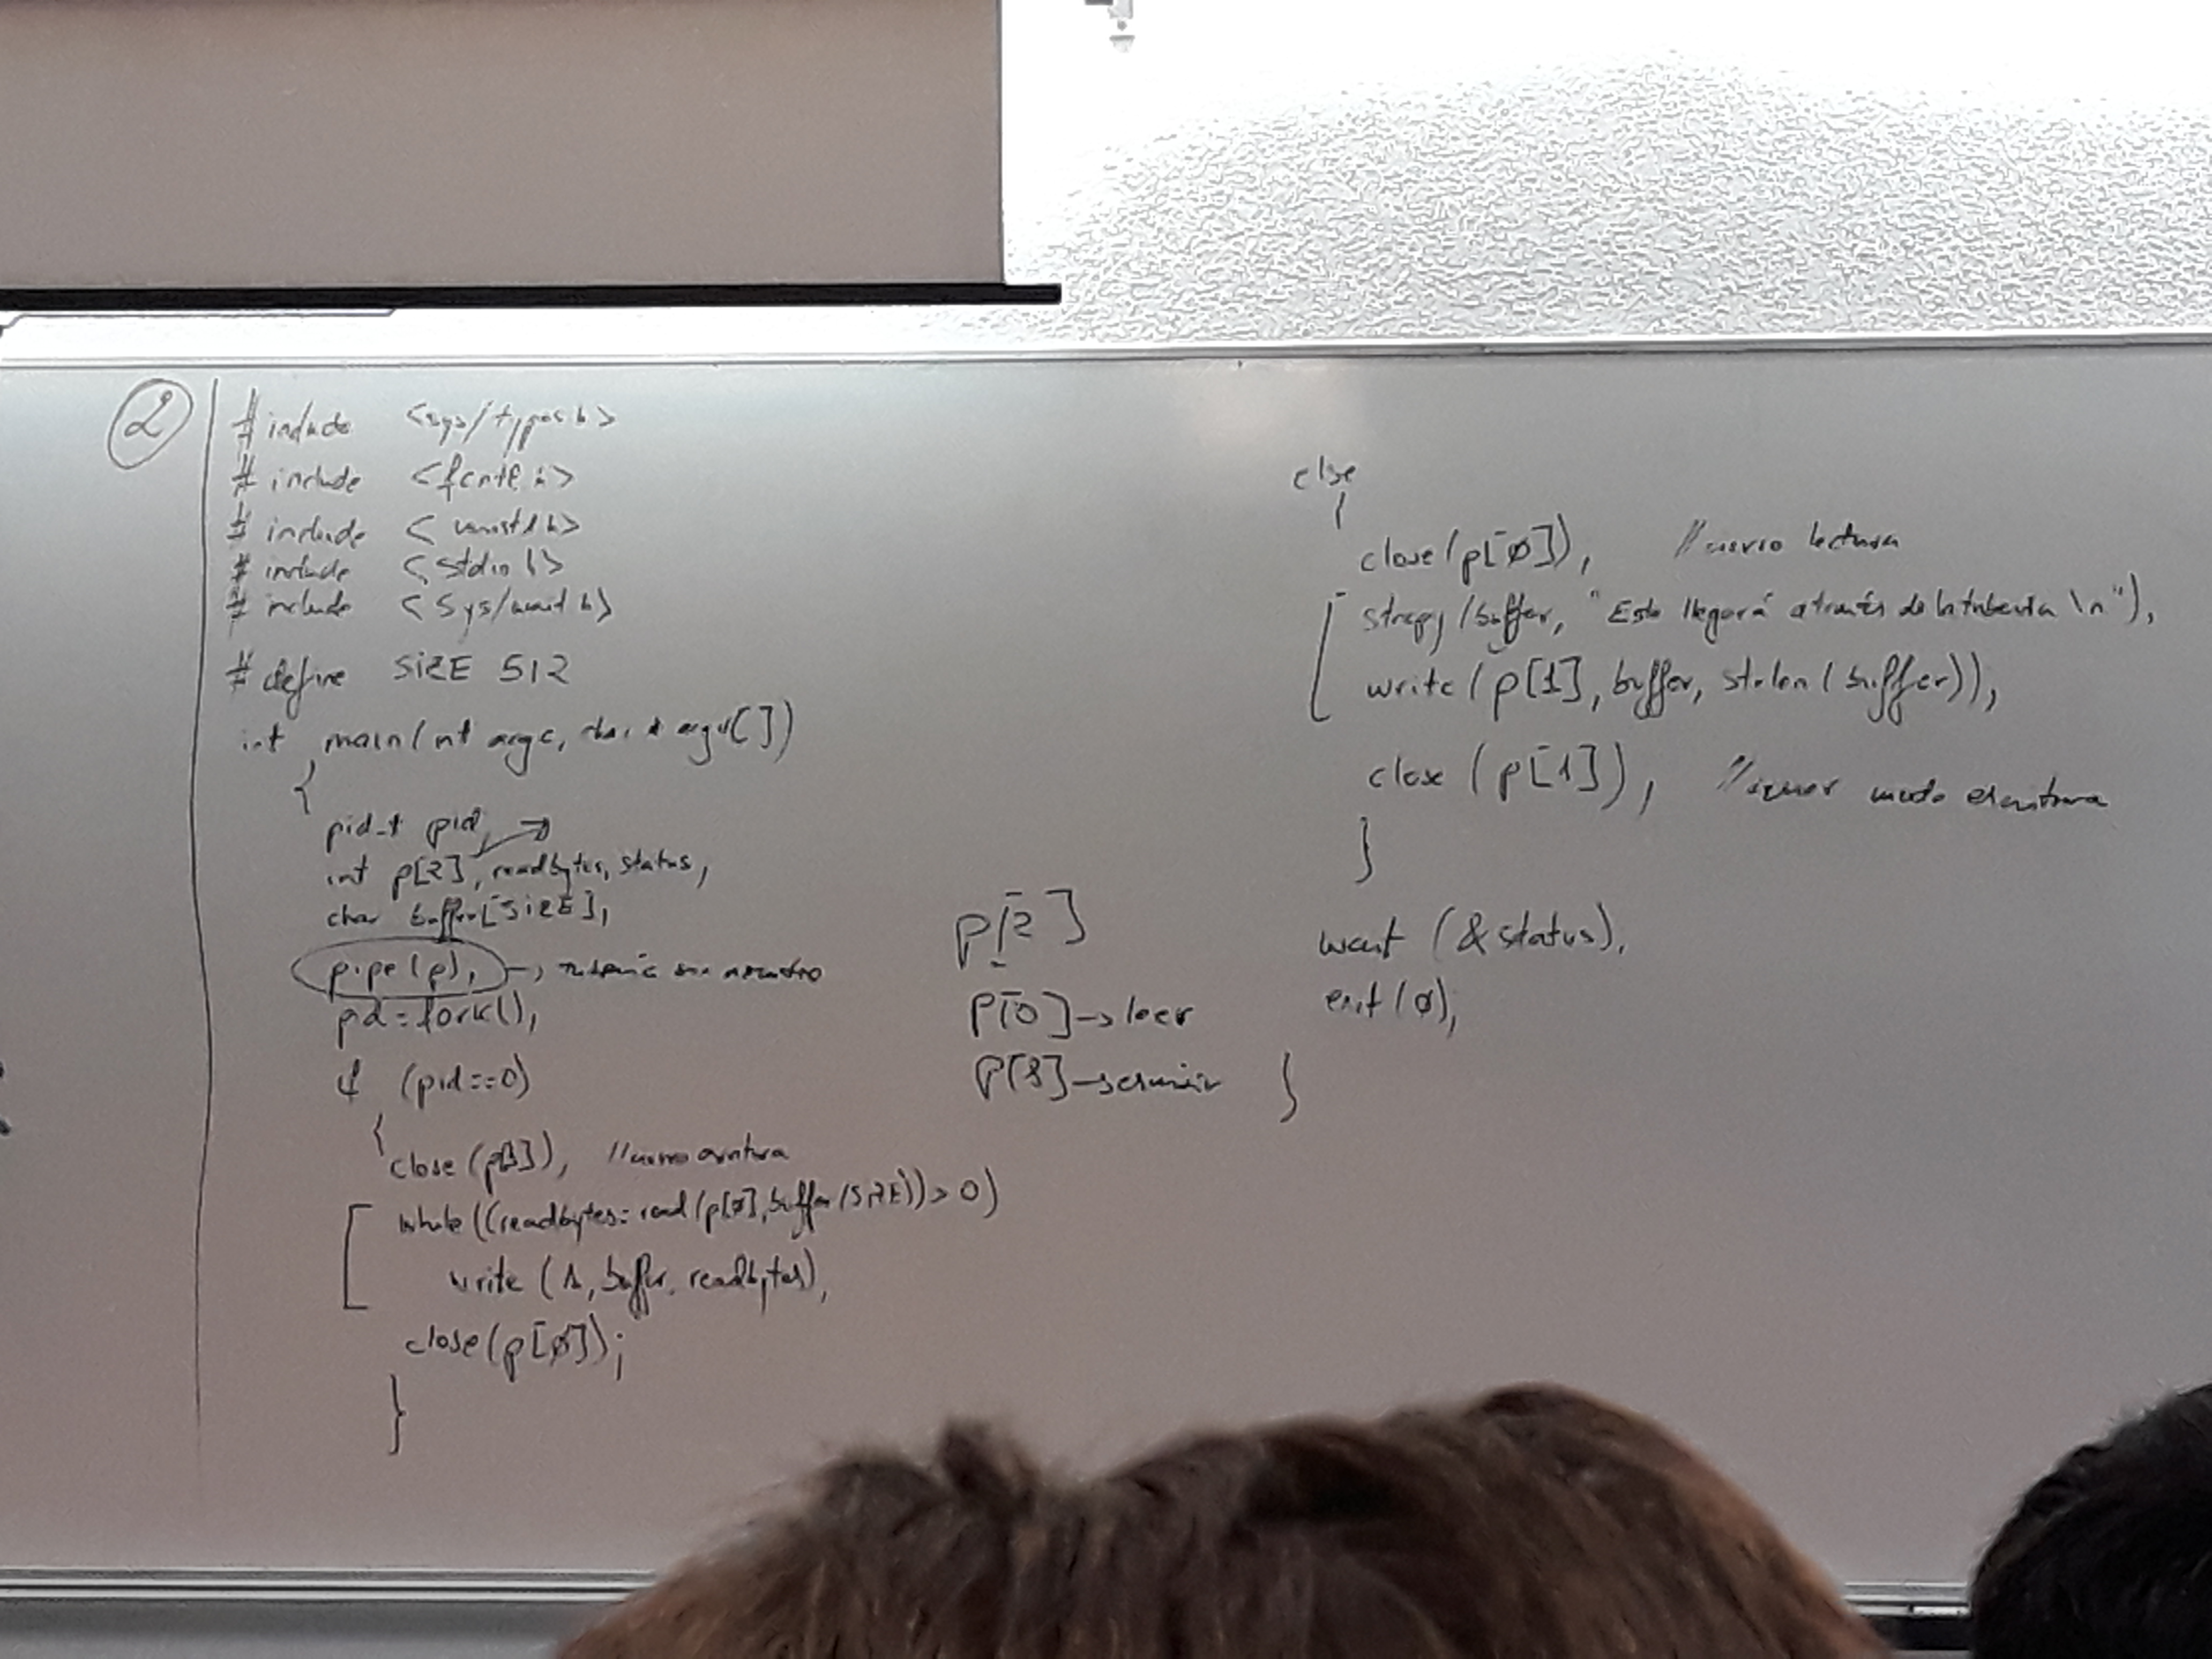 2
# include <sys/types.h>
# include <fcntl.h>
# include <unistd.h>
# include <stdio.h>
# include <sys/wait.h>
# define SIZE 512
int main(int argc, char * argv[])
{
pid_t pid;
int p[2], readbytes, status;
char buffer[SIZE];
pipe(p); → tubería sin nombre
pid=fork();
if (pid==0)
{
close(p[1]); // cierro escritura
while((readbytes=read(p[0],buffer,SIZE))>0)
write (1, buffer, readbytes);
close(p[0]);
}
p[2]
p[0] → leer
p[1] → escribir
else
{
close(p[0]); // cierro lectura
strcpy(buffer, "Esto llegará a través de la tubería \n");
write (p[1], buffer, strlen(buffer));
close (p[1]); // modo escritura
}
wait (&status);
exit(0);
}